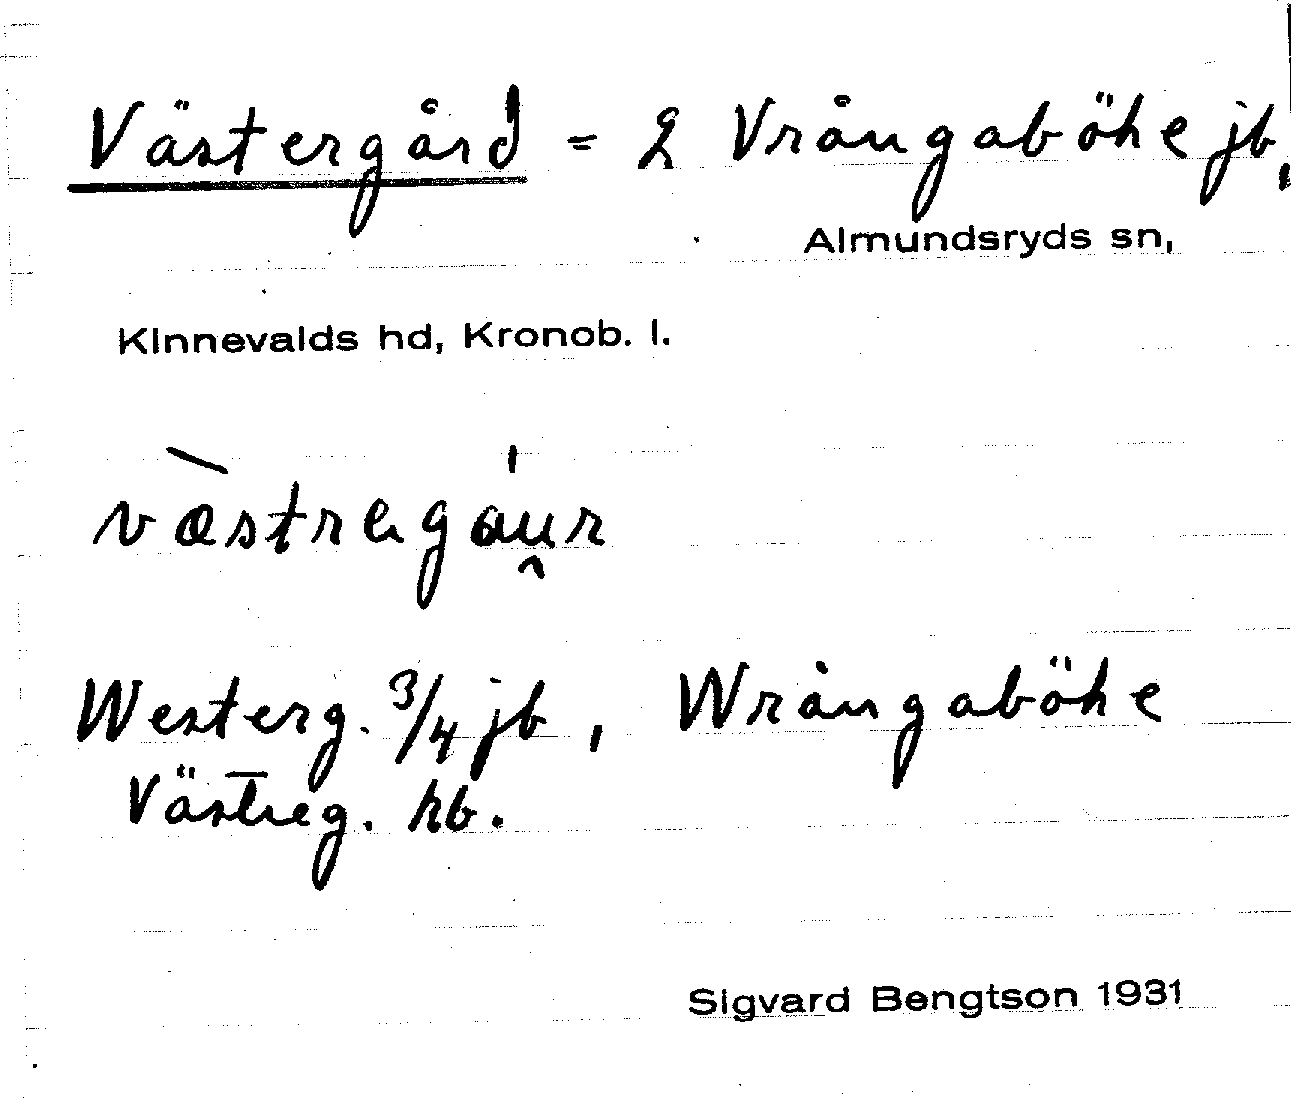 Västergård = 2 Vrångaböke jb,
Almundsryds sn,
Kinnevalds hd, Kronob. l.
Westerg. 3/4 jb, Wrångaböke
Västreg. hb.
Sigvard Bengtson 1931